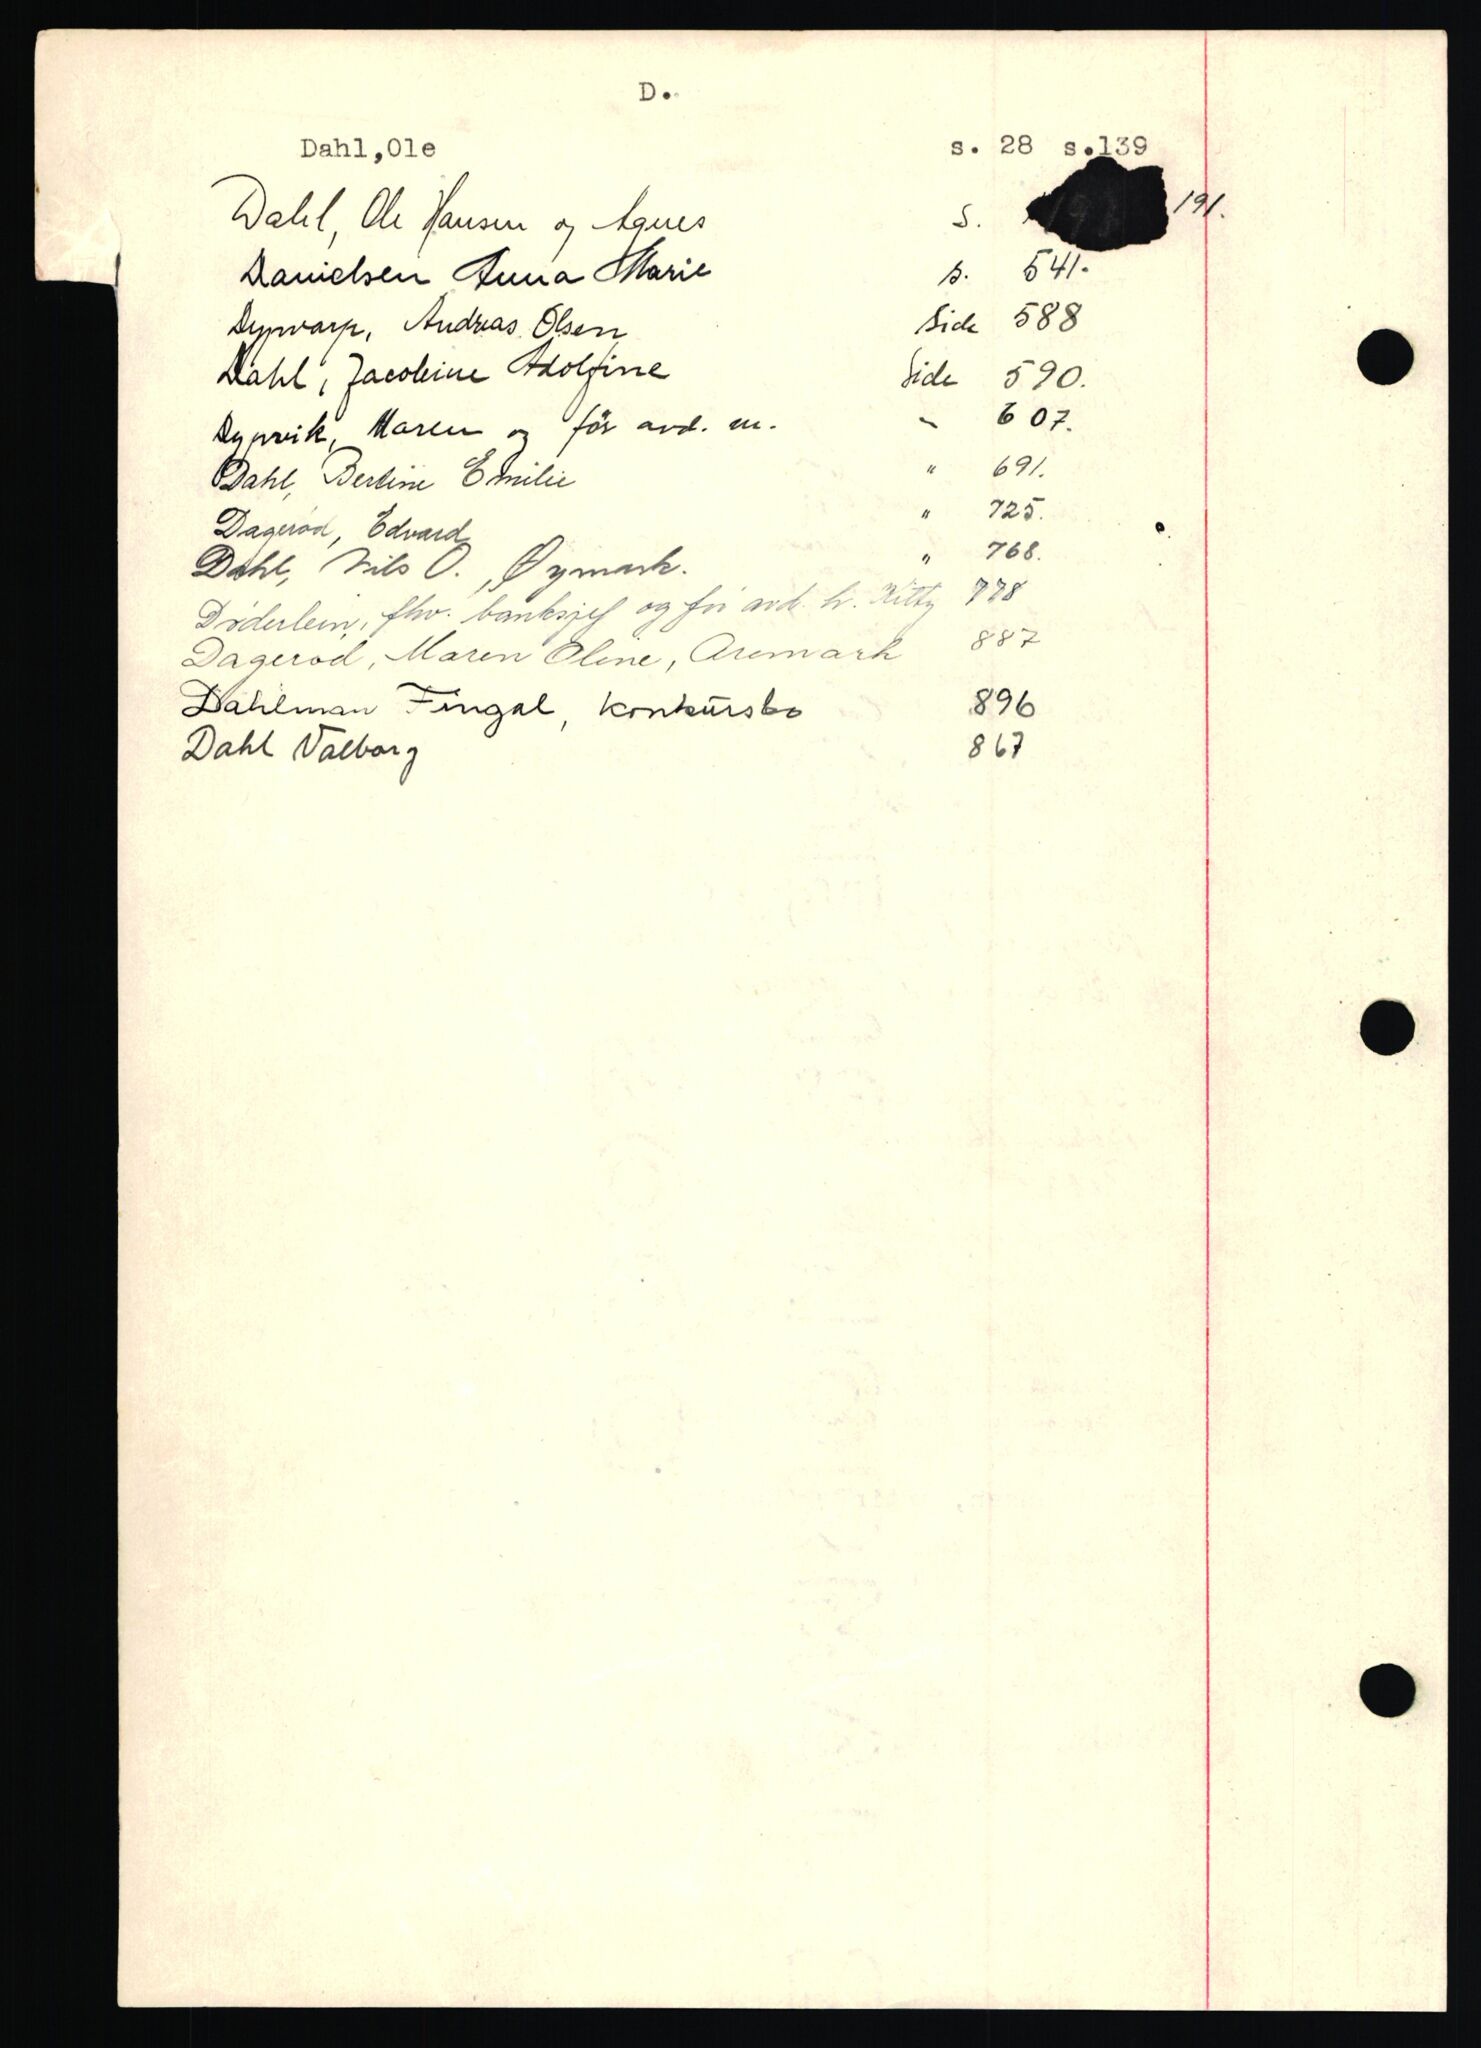 D.
Dahl,Ole s. 28 s.139
Dahl, Ole Hansen og Agnes S. 191.
Danielsen Anna Marie s. 541.
Dypvarp, Andreas Olsen Side 588
Dahl, Jacobine Adolfine Side 590.
Dypvik, Maren og før avd. m. " 607.
Dahl, Bertine Emilie " 691.
Dagerød, Edvard " 725.
Dahl, Nils O., Øymark. " 768.
Döderlein, fhv. banksjef og for avd. h. Kitty 778
Dagerød, Maren Oline, Aremark 887
Dahlman Fingal, konkursbo 896
Dahl Valborg 867